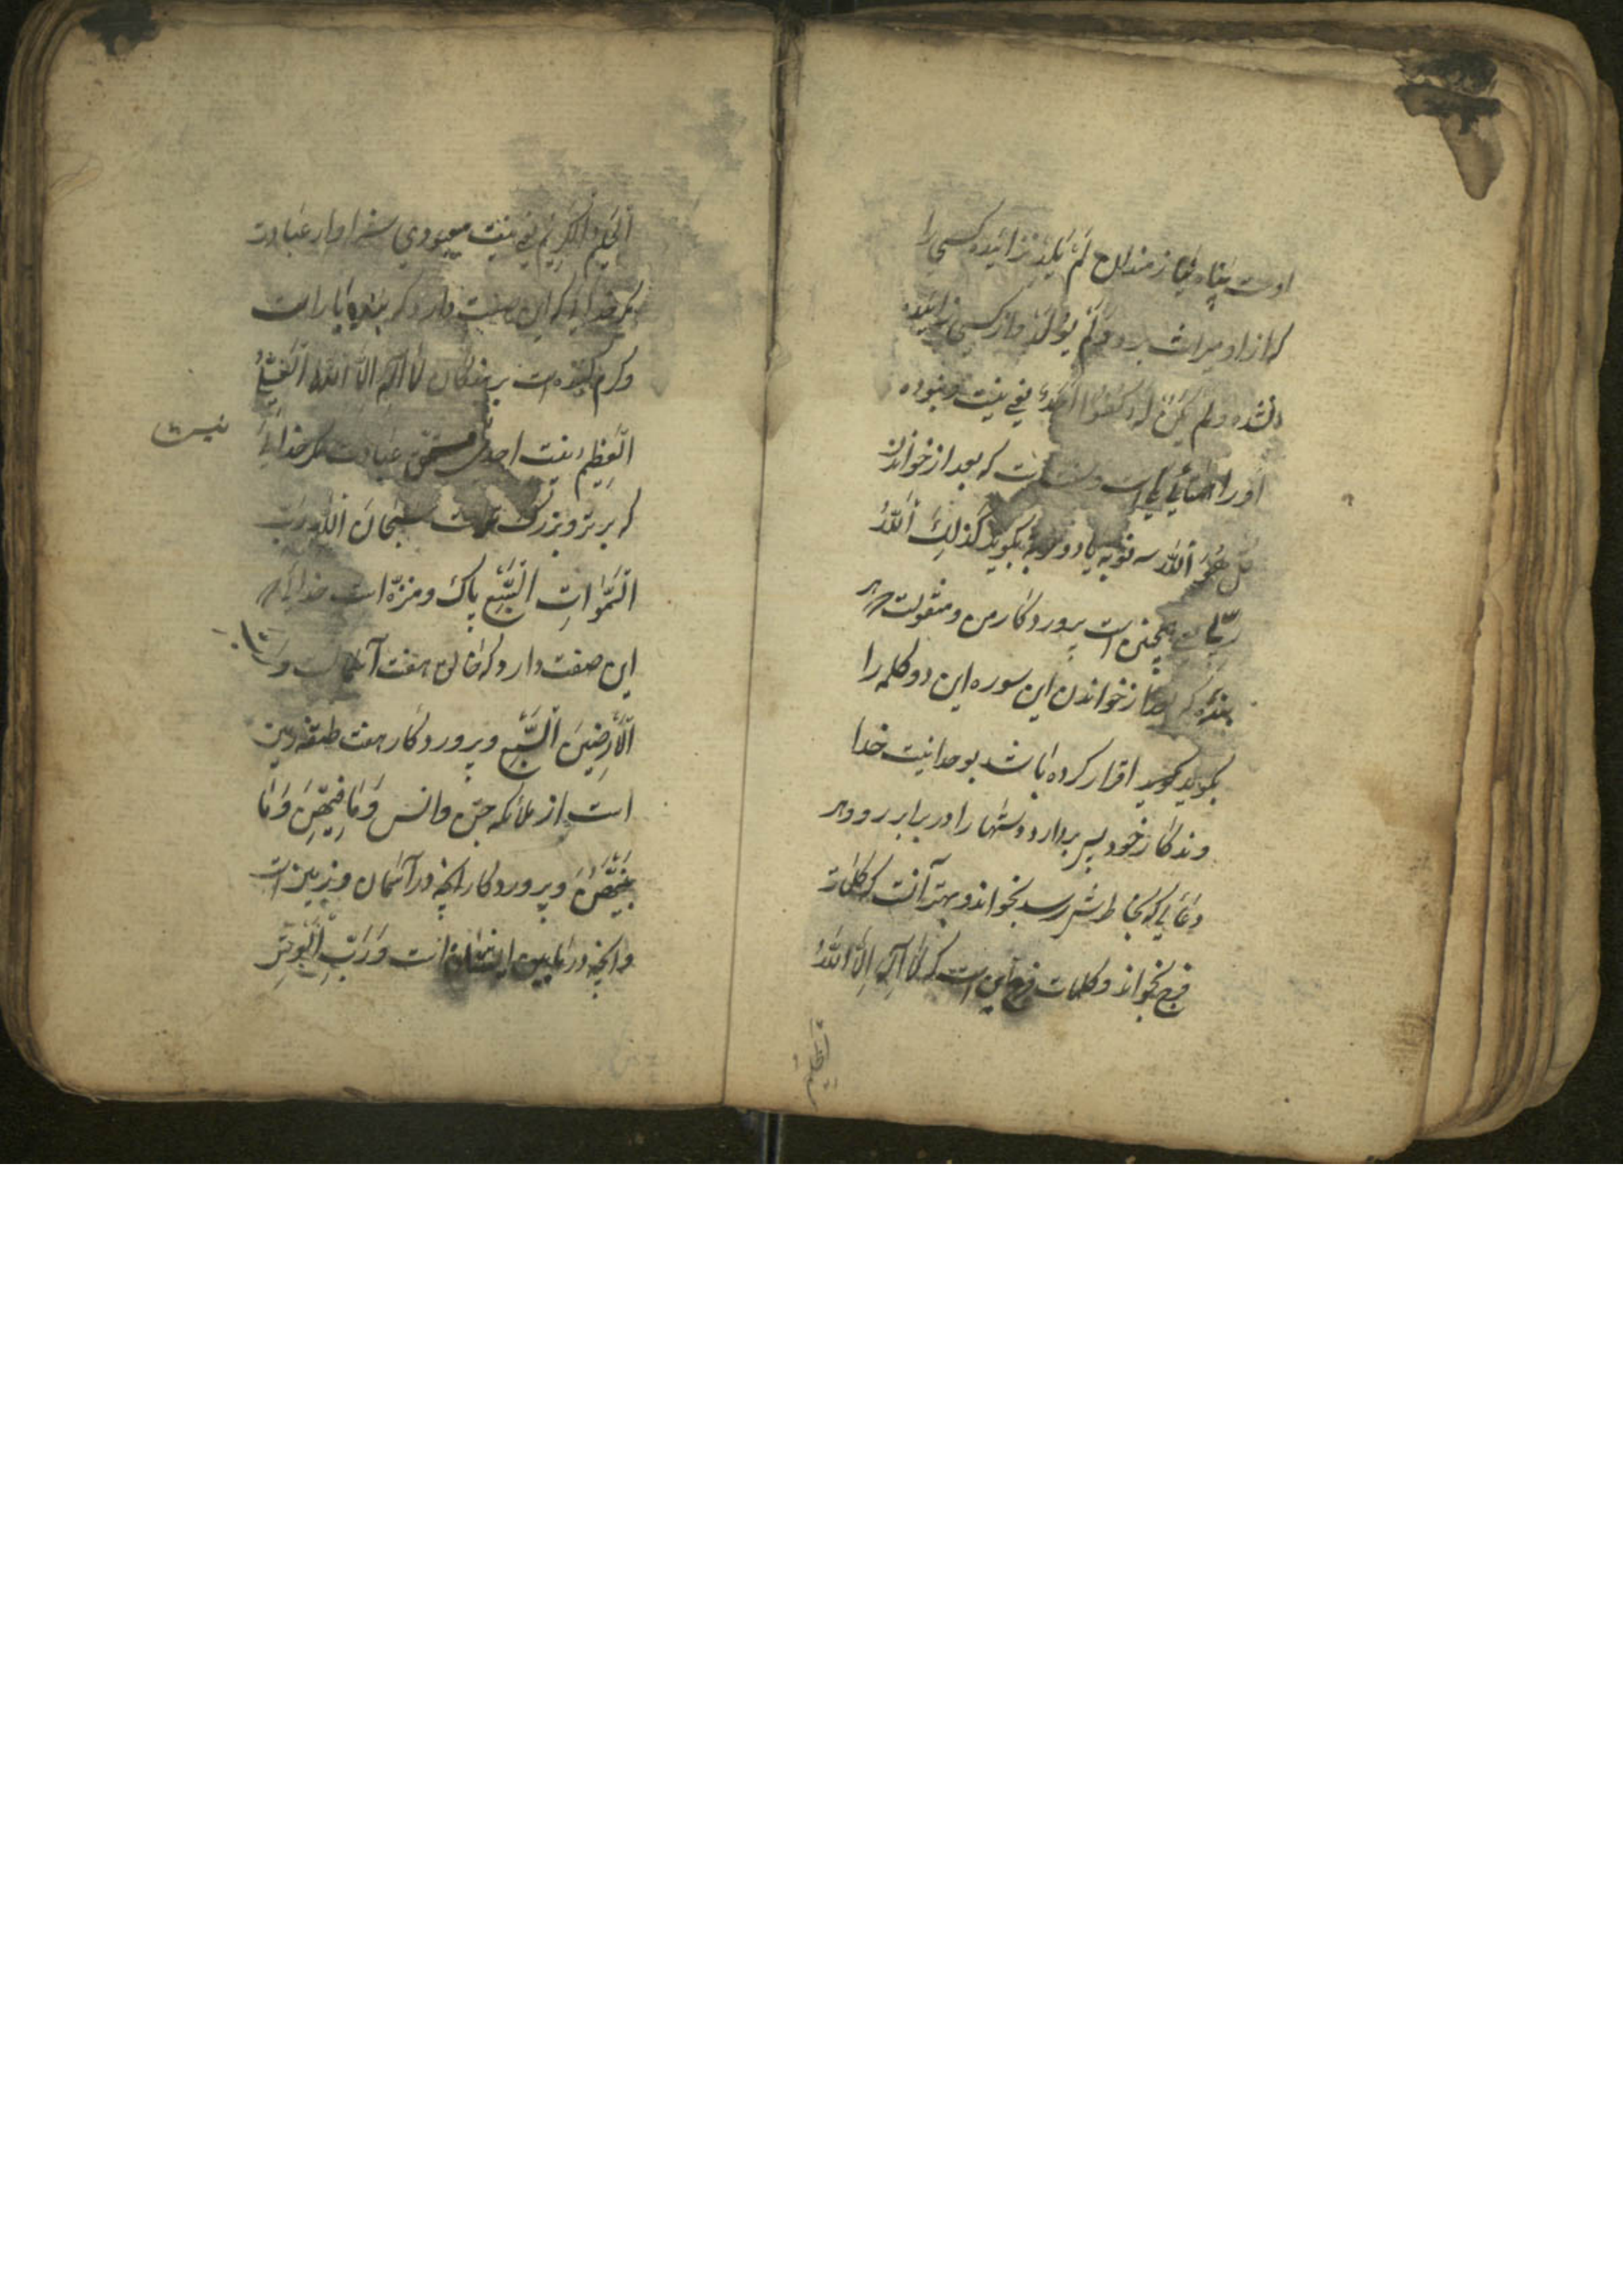 اوست پناه نیازمندان لَمْ یَلِدْ نزائیده کسی را
که از او میراث برد وَلَمْ یُولَدْ و از کسی زائیده
نشده ولم یَکُنْ لَهُ کُفُوًا اَحَدٌ یعنی نیست و نبوده
او را همتائی است که بعد از خواندن
قل هُوَ اَللّه سه نوبه یا دو نوبه بکوید کَذلِکَ اَللّهُ
رَبّی یعنی همچنین است پروردکار من و منقولست هر
بنده که بعد از خواندن این سوره این دو کلمه را
بکوید اقرار کرده باشد بوحدانیت خدا
خود پس بردارد دستها را در برابر رو و هر
دعایی که بخاطرش رسد بخواند و بهتر آنست که کلمات
فرج بخواند و کلمات فرج این است که لا اِلهَ اِلاَّ اللّهُ
اَلحَلیمُ
اَلحَلیمُ الکَریمُ یعنی نیست معبودی سزاوار عبادت
مکر خدایی که این صفت دارد که بردبار است
و کرم کننده است بر بندکان لا اِلهَ اِلاَّ اَللّهُ اَلعَلِیُّ
العَظیمُ نیست احدی مستحق عبادت مکر خدایی
نیست
که برتر و بزرک است سُبحانَ اَللّهِ رَبِّ
السَّمواتِ السَّبْعِ پاک و منزّه است خدایی که
این صفت دارد که خالق هفت آسمان است وَرَبِّ
اَلاَرَضینَ اَلسَّبْعِ و پروردکار هفت طبقه زمین
است از ملائکه جن و انس وَمَا فیهِنَّ وَمَا
بَیْنَهُنَّ و پروردکار آنچه در آسمان و زمین است
و آنچه در مابین ایشان است وَرَبِّ